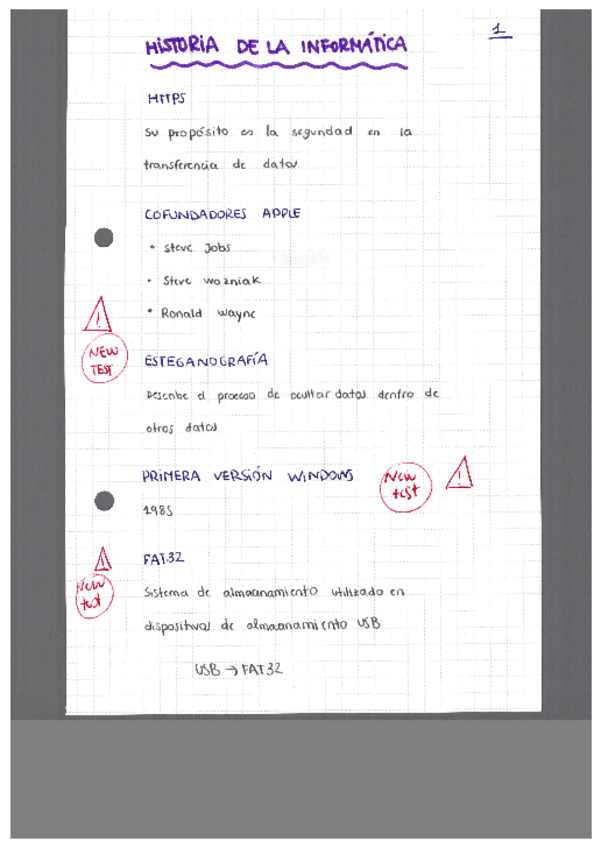 1
HISTORIA DE LA INFORMÁTICA
HTTPS
Su propósito es la seguridad en la
transferencia de datos
COFUNDADORES APPLE
• Steve Jobs
• Steve Wozniak
• Ronald Wayne
!
NEW
TEST
ESTEGANOGRAFÍA
Describe el proceso de ocultar datos dentro de
otros datos
PRIMERA VERSIÓN WINDOWS
New
test
!
1985
!
New
test
FAT32
Sistema de almacenamiento utilizado en
dispositivos de almacenamiento USB
USB → FAT32